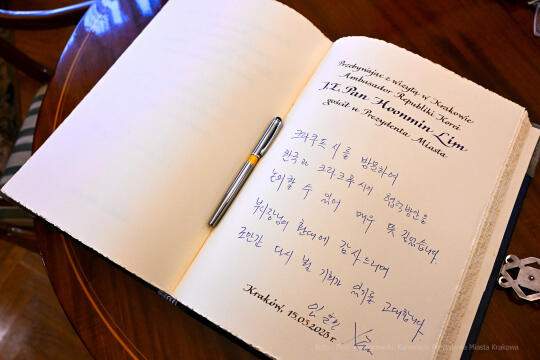 Przebywając z wizytą w Krakowie
Ambasador Republiki Korei
J.E. Pan Hoonmin Lim
gościł u Prezydenta Miasta
크라쿠프 시를 방문하여
한국과 크라쿠프시의 협력방안을
논의할 수 있어 매우 뜻 깊었습니다.
부시장님의 환대에 감사드리며
조만간 다시 뵐 기회가 있기를 고대합니다.
임훈민
Kraków, 15.03.2023 r.
Miasta Krakowa